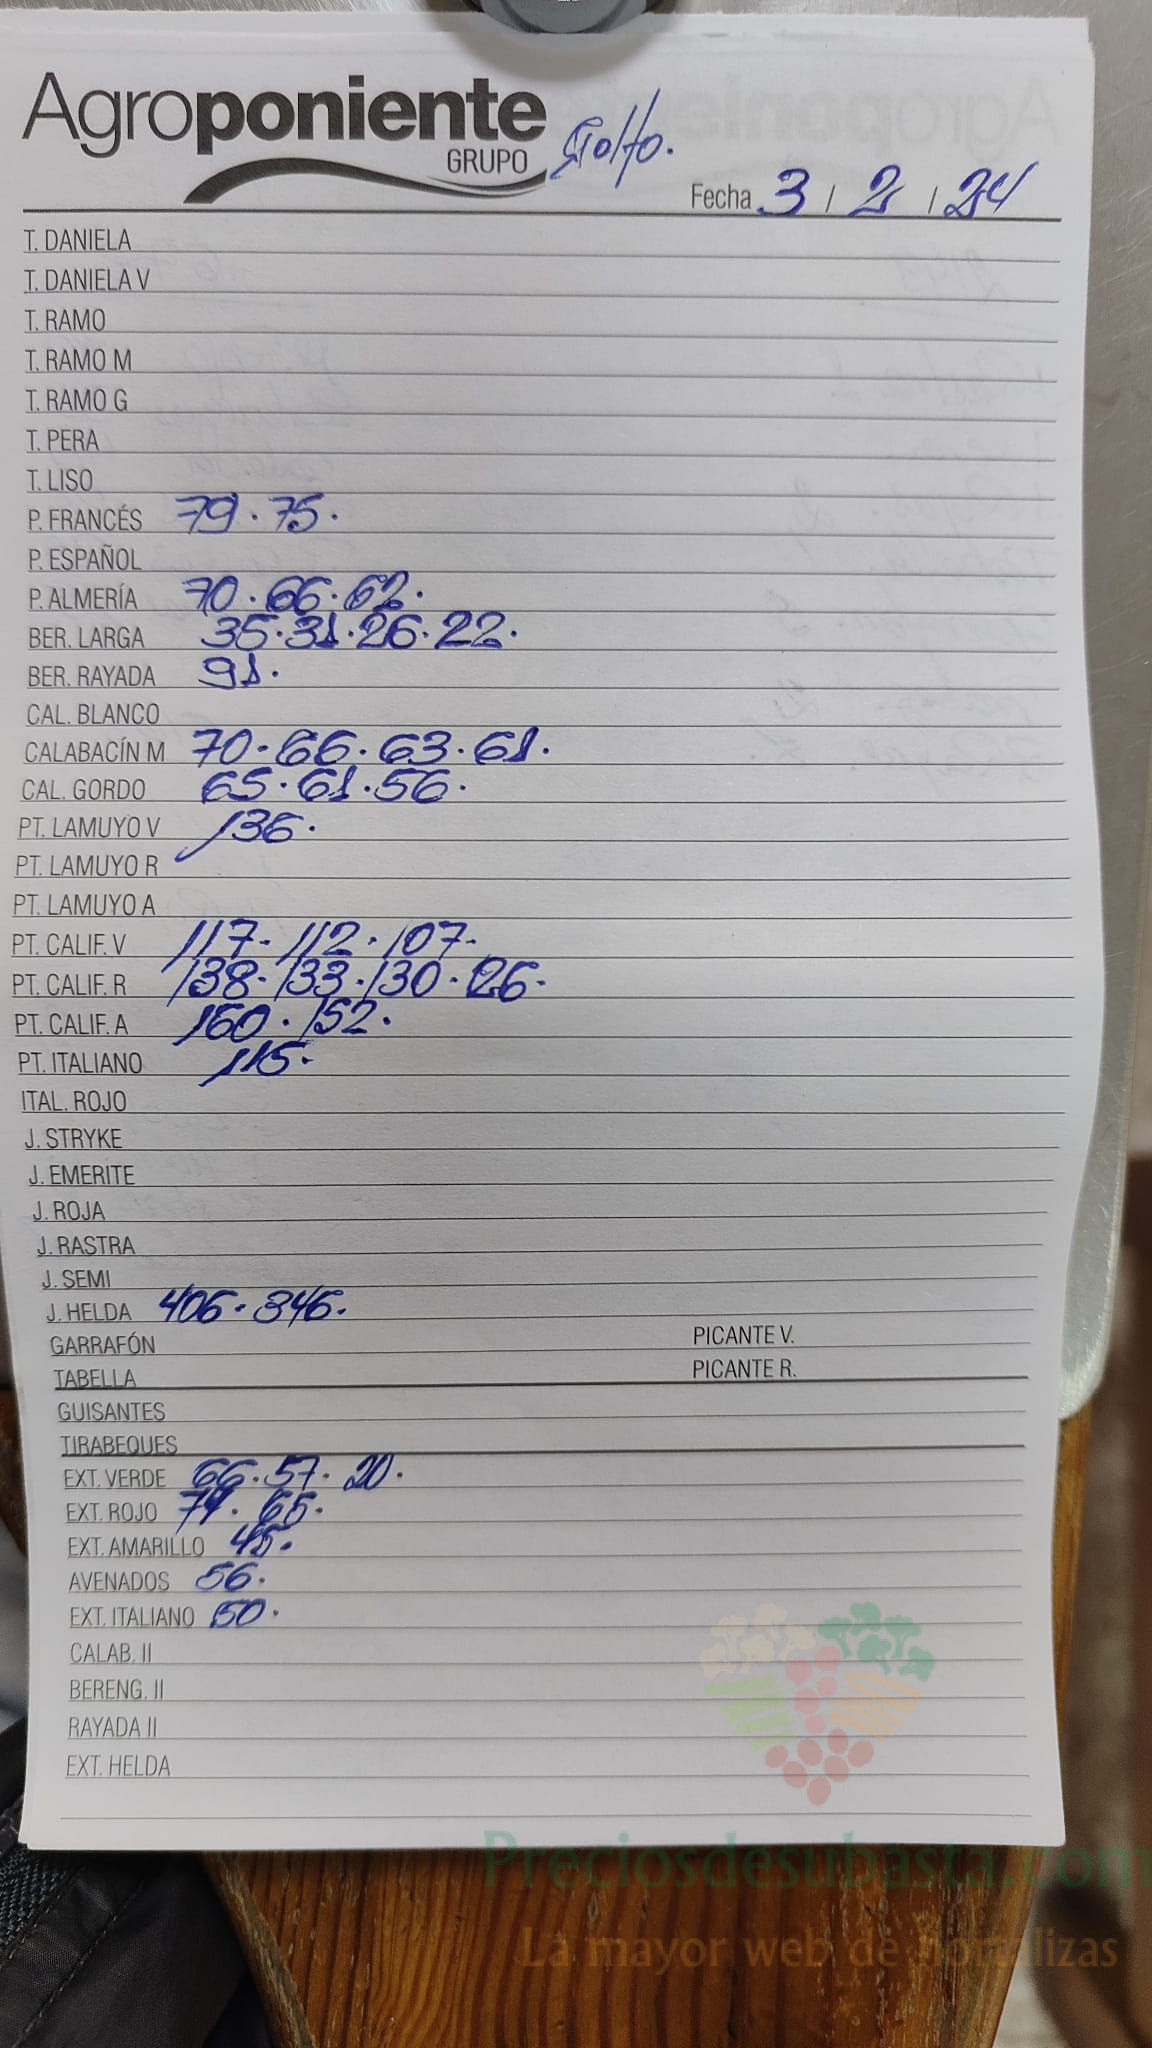 Agroponiente
GRUPO
Golfo.
Fecha 3 / 2 / 24
T. DANIELA
T. DANIELA V
T. RAMO
T. RAMO M
T. RAMO G
T. PERA
T. LISO
P. FRANCÉS 79. 75.
P. ESPAÑOL
P. ALMERÍA 70. 66. 62.
BER. LARGA 35. 31. 26. 22.
BER. RAYADA 91.
CAL. BLANCO
CALABACÍN M 70. 66. 63. 61.
CAL. GORDO 65. 61. 56.
PT. LAMUYO V 136.
PT. LAMUYO R
PT. LAMUYO A
PT. CALIF. V 117. 112. 107.
PT. CALIF. R 138. 133. 130. 126.
PT. CALIF. A 160. 152.
PT. ITALIANO 115.
ITAL. ROJO
J. STRYKE
J. EMERITE
J. ROJA
J. RASTRA
J. SEMI
J. HELDA 406. 346.
GARRAFÓN PICANTE V.
TABELLA PICANTE R.
GUISANTES
TIRABEQUES
EXT. VERDE 66. 57. 20.
EXT. ROJO 65.
EXT. AMARILLO 45.
AVENADOS 56.
EXT. ITALIANO 50.
CALAB. II
BERENG. II
RAYADA II
EXT. HELDA
Preciosdesubasta.com
La mayor web de hortalizas